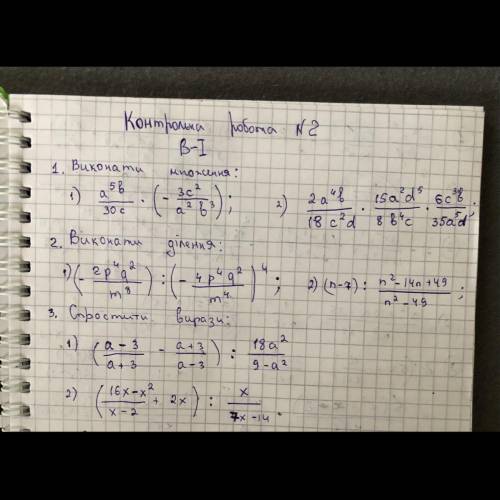 Контрольна робота №2
В-I
1. Виконати множення:
1) a⁵b/30c · (- 3c²/a²b³); 2) 2a⁴b/18c²d · 15a²d⁵/8b⁴c · 6c³b/35a⁵d;
2. Виконати ділення:
1) (- 2p⁴q²/m³) : (- 4p⁴q²/m⁴)⁴; 2) (n-7) : n²-14n+49/n²-49;
3. Спростити вирази:
1) (a-3/a+3 - a+3/a-3) : 18a²/9-a²
2) (16x-x²/x-2 + 2x) : x/7x-14.